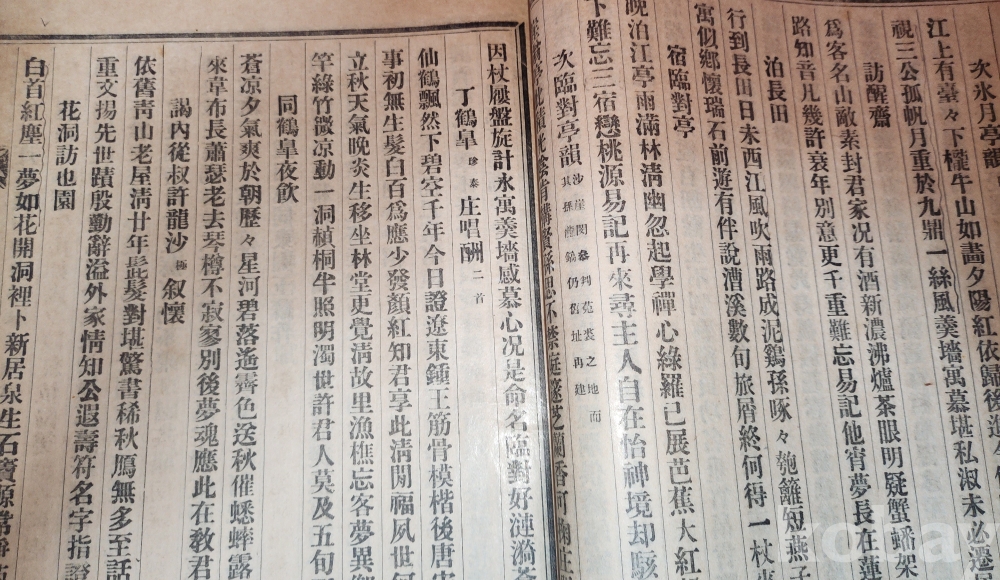 次氷月亭韻
江上有臺々下權牛山如畵夕陽紅依歸後進
視三公孤帆月重於九鼎一絲風羹墻寓慕堪私淑未必遷
訪醒齋
爲客名山敵素封君家况有酒新濃沸爐茶眼明疑蟹蟠架
路知音凡幾許衰年別意更千重難忘易記他宵夢長在蓮
泊長田
行到長田日未西江風吹雨路成泥鷄孫啄々匏籬短燕子
寓似鄉懷瑞石前遊有伴說漕溪數旬旅屑終何得一杖
宿臨對亭
晚泊江亭雨滿林淸幽忽起學禪心綠羅已展芭蕉大紅
下難忘三宿戀桃源易記再來尋主人自在怡神境却駭
次臨對亭韻 沙崖閔參判菟裘之地而其孫 鎬仍舊址再建
因杖屨盤旋計永寓羹墻感慕心况是命名臨對好漣漪
丁鶴皐 珍泰 庄唱酬 二首
仙鶴飄然下碧空千年今日證遼東鍾王筋骨模楷後唐
事初無生髮白百爲應少發顏紅知君享此淸閒福夙世
立秋天氣晚炎生移坐林堂更覺淸故里漁樵忘客夢異
竿綠竹微凉動一洞楨桐半照明濁世許君人莫及五旬
同鶴皐夜飮
蒼凉夕氣爽於朝歷々星河碧落遙齊色送秋催蟋蟀露
來韋布長蕭瑟老去琴樽不寂寥別後夢魂應此在敎君
謁內從叔許龍沙 極 叙懷
依舊靑山老屋淸廿年髭髮對堪驚書稀秋鴈無多至話
重文揚先世蹟殷勤辭溢外家情知公遐壽符名字指證
花洞訪也園
白首紅塵一夢如花開洞裡卜新居泉生石竇源常